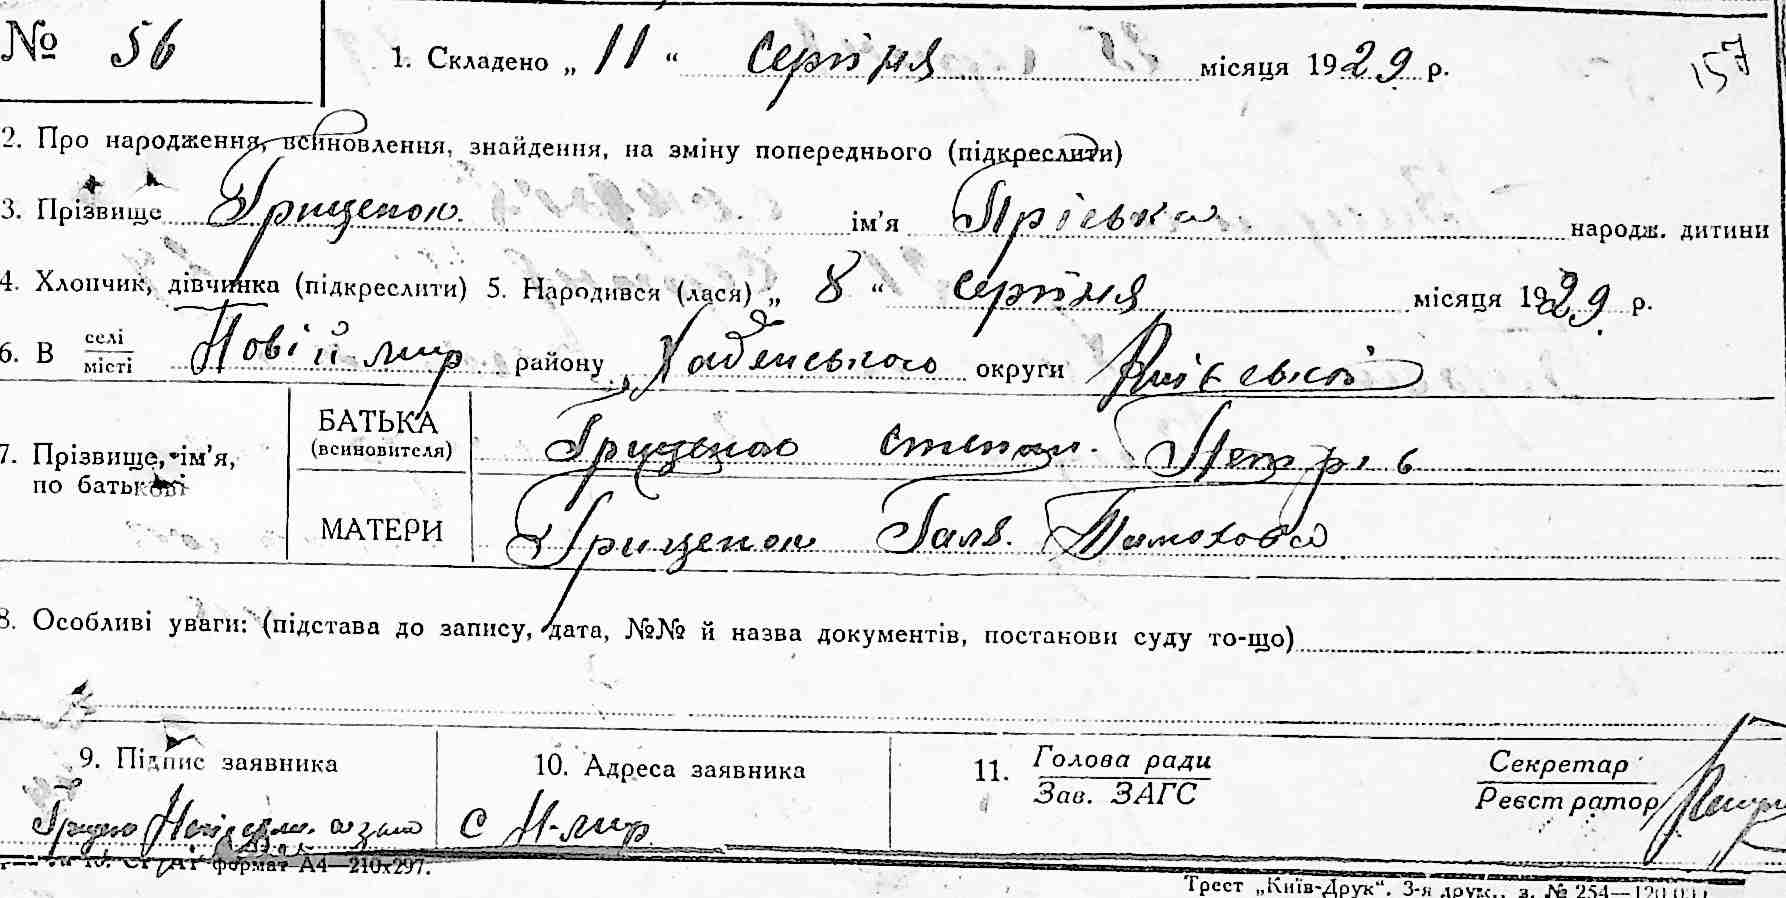 № 56
1. Складено „ 11 “ серпня місяця 1929 р.
157
2. Про народження, всиновлення, знайдення, на зміну попереднього (підкреслити)
3. Прізвище Грищенко ім’я Пріська народж. дитини
4. Хлопчик, дівчинка (підкреслити) 5. Народився (лася) „ 8 “ серпня місяця 1929 р.
6. В селі/місті Новій мир району Хабенського округи Київської
7. Прізвище, ім’я, по батькові
БАТЬКА (всиновителя) Грищенко Степан Петрів
МАТЕРИ Грищенко Галя.
8. Особливі уваги: (підстава до запису, дата, №№ й назва документів, постанови суду то-що)
9. Підпис заявника
10. Адреса заявника
11. Голова ради / Зав. ЗАГС
Секретар / Реєстратор
с Н-мир
формат А4—210х297.
Трест „Київ-Друк“. 3-я друк., з. № 254—